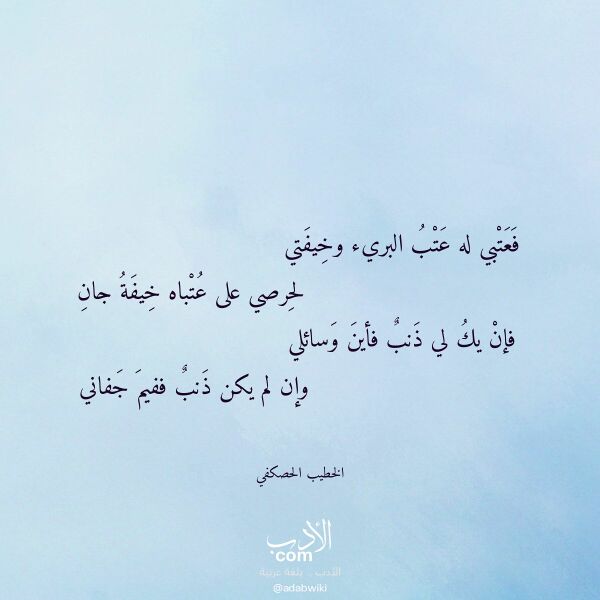 فَعَتْبي له عَتْبُ البريء وخِيفَتي
لحِرصي على عُتْباه خِيفَةُ جانِ
فإنْ يكُ لي ذَنبٌ فأينَ وَسائلي
وإن لم يكن ذَنبٌ ففيمَ جَفاني
الخطيب الحصكفي
الأدب
com
الأدب .. بلغة عربية
@adabwiki